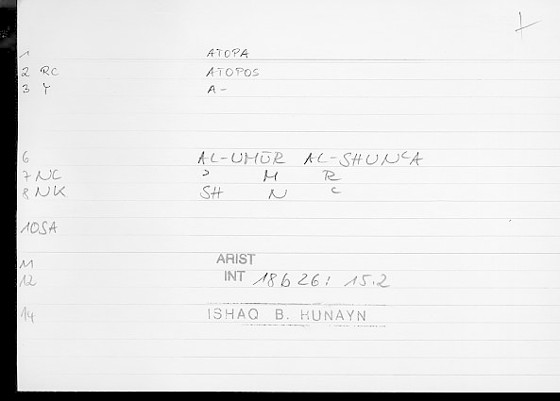 1 ATOPA
2 RC ATOPOS
3 Y A-
6 AL-UMŪR AL-SHUNʿA
7 NC ʾ M R
8 NK SH N ʿ
10 SA
11 ARIST
12 INT 18b26: 15.2
14 ISHAQ B. HUNAYN